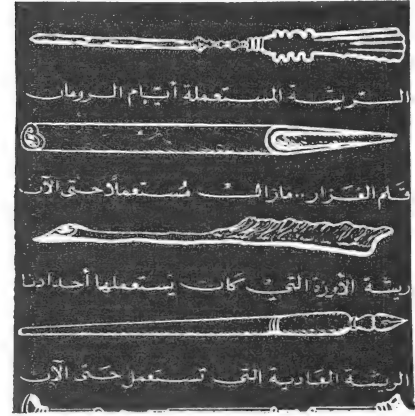 الريشة المستعملة أيام الرومان
قلم الغزار..مازال مُستعملا حتى الآن
ريشة الأوزة التي كان يستعملها أجدادنا
الريشة العادية التي تستعمل حتى الآن